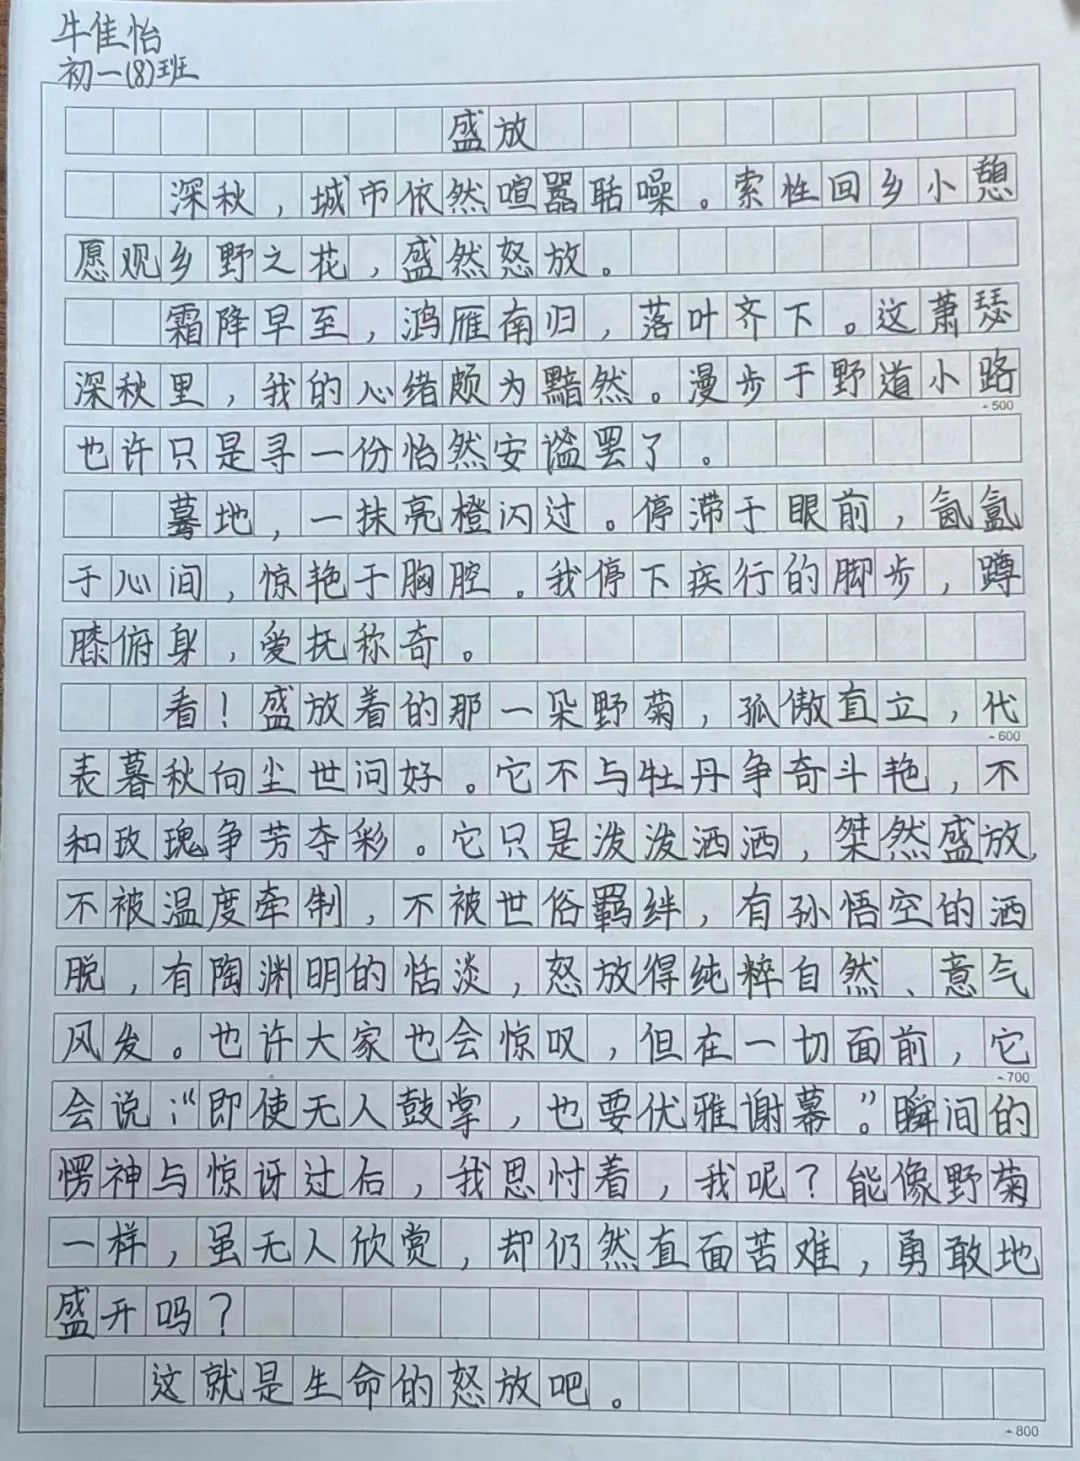 牛佳怡
初一(8)班
盛放
深秋，城市依然喧嚣聒噪。索性回乡小憩
愿观乡野之花，盛然怒放。
霜降早至，鸿雁南归，落叶齐下。这萧瑟
深秋里，我的心绪颇为黯然。漫步于野道小路
-500
也许只是寻一份怡然安谧罢了。
蓦地，一抹亮橙闪过。停滞于眼前，氤氲
于心间，惊艳于胸腔。我停下疾行的脚步，蹲
膝俯身，爱抚称奇。
看！盛放着的那一朵野菊，孤傲直立，代
-600
表暮秋向尘世问好。它不与牡丹争奇斗艳，不
和玫瑰争芳夺彩。它只是泼泼洒洒，桀然盛放，
不被温度牵制，不被世俗羁绊，有孙悟空的洒
脱，有陶渊明的恬淡，怒放得纯粹自然、意气
风发。也许大家也会惊叹，但在一切面前，它
-700
会说：“即使无人鼓掌，也要优雅谢幕”。瞬间的
愣神与惊讶过后，我思忖着，我呢？能像野菊
一样，虽无人欣赏，却仍然直面苦难，勇敢地
盛开吗？
这就是生命的怒放吧。
-800